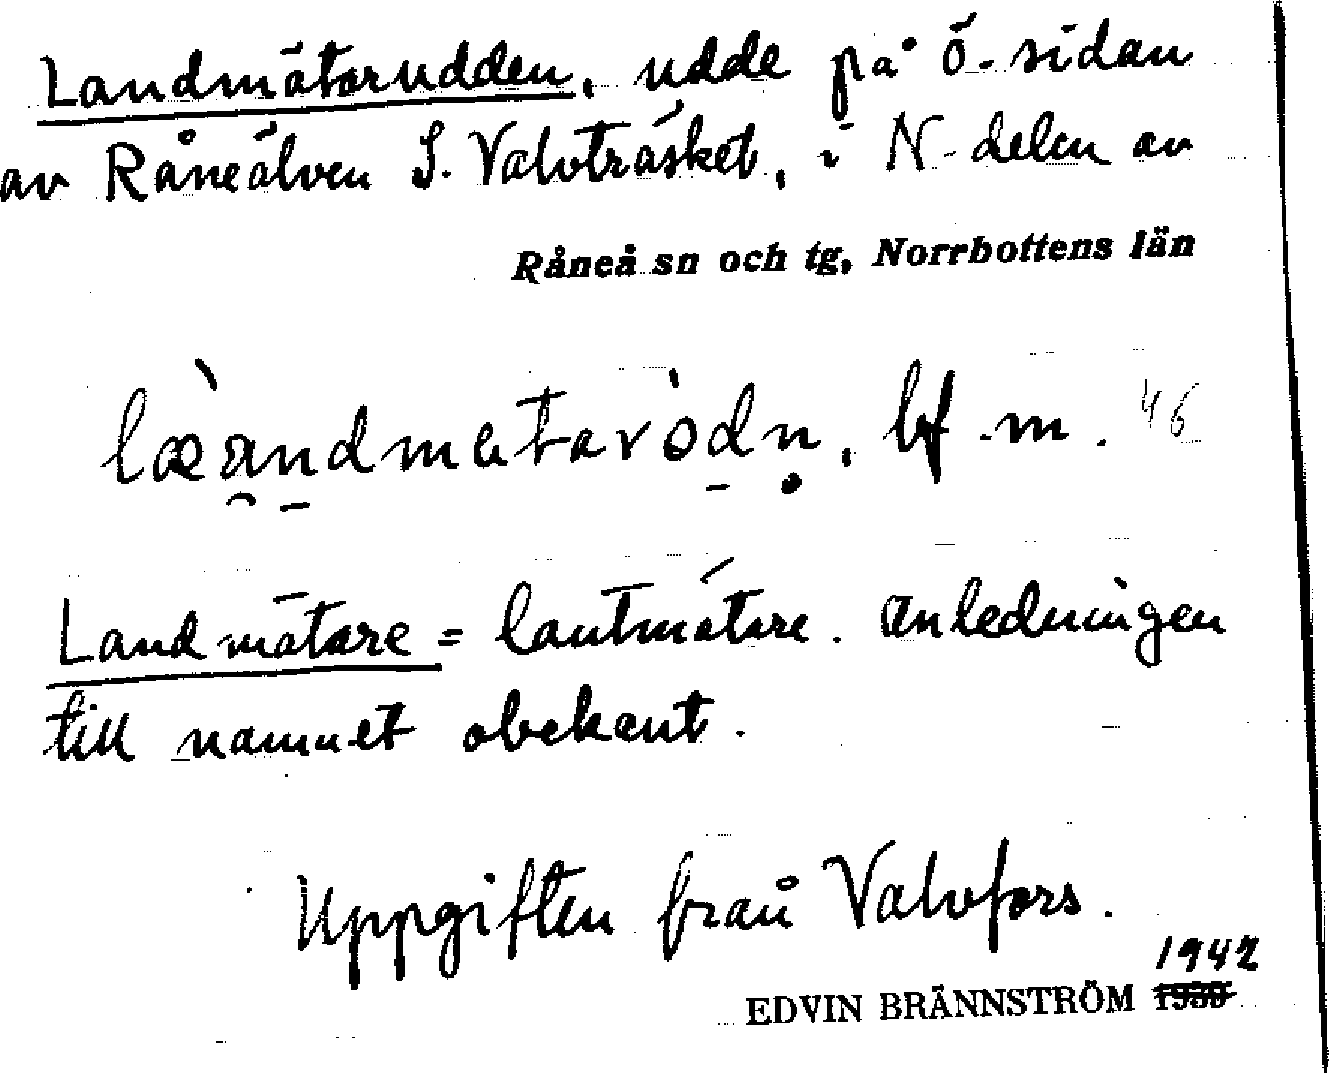 Landmätarudden, udde på Ö-sidan
av Råneälven S. Valvträsket, i N-delen av
Råneå sn och tg, Norrbottens län
bf. m. 46
Landmätare = lantmätare. Anledningen
till namnet obekant.
Uppgiften från Valvfors.
1942
EDVIN BRÄNNSTRÖM 1938